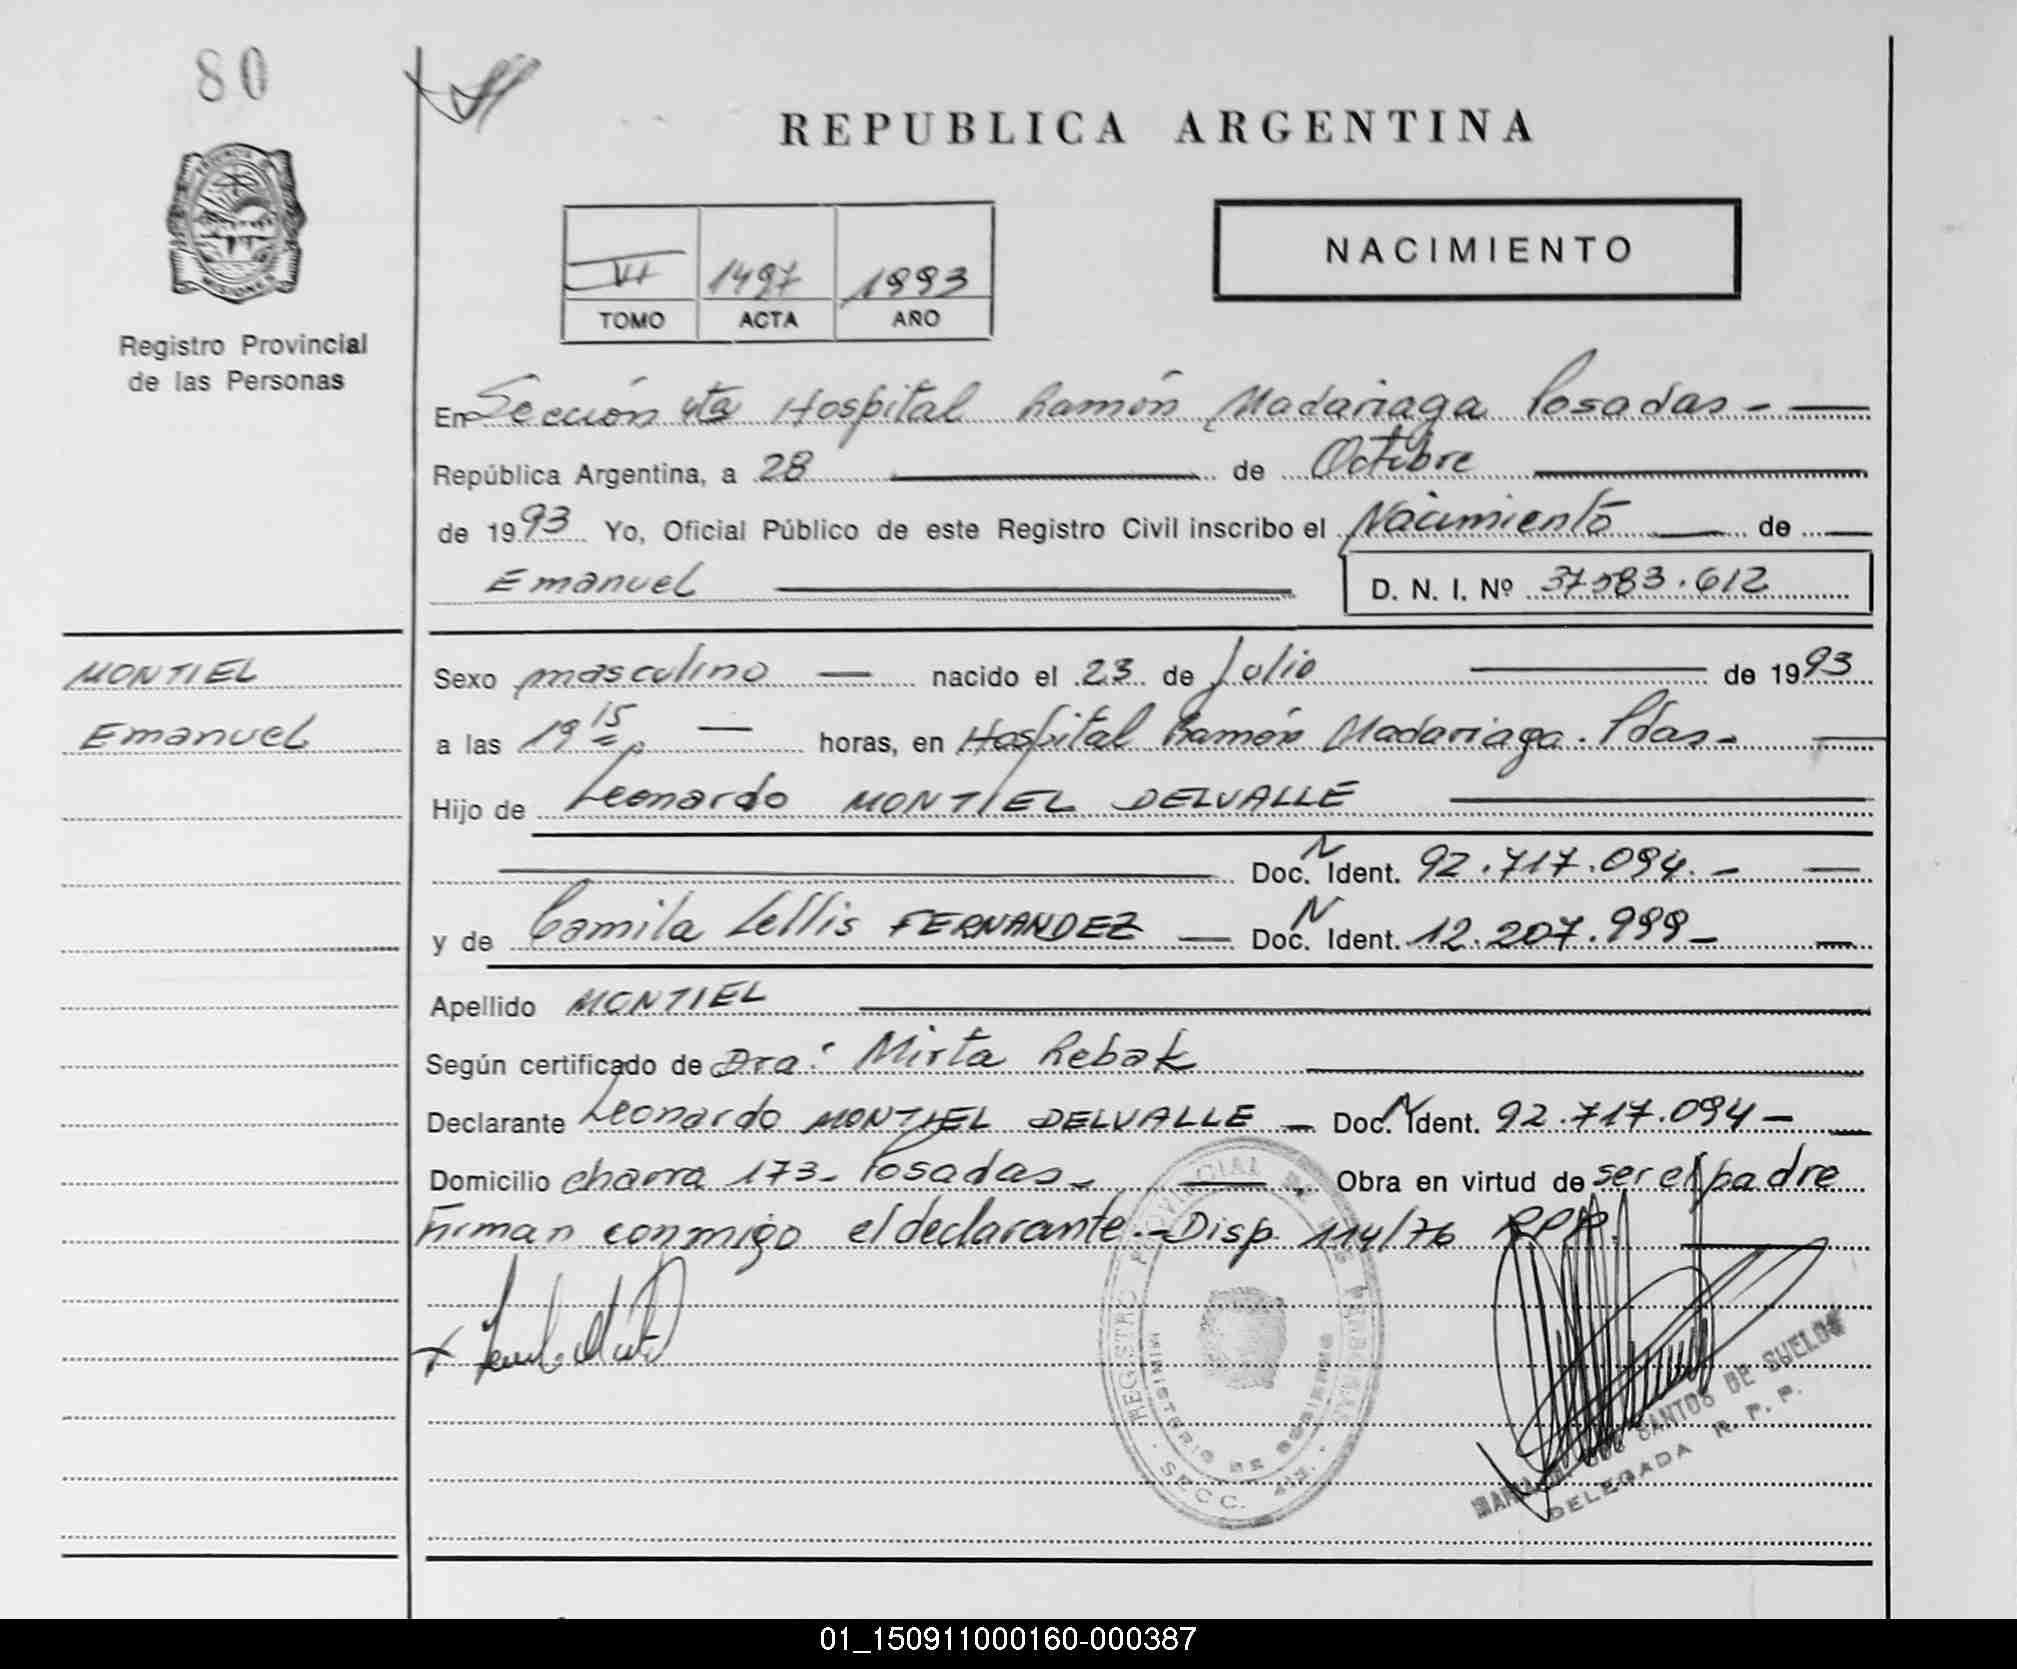 80
REPUBLICA ARGENTINA
NACIMIENTO
VII 1497 1993
TOMO ACTA AÑO
Registro Provincial
de las Personas
En Sección 4ta Hospital Ramón Madariaga Posadas -
República Argentina, a 28 de Octubre
de 1993 Yo, Oficial Público de este Registro Civil inscribo el Nacimiento de
Emanuel D. N. I. Nº 37.583.612
MONTIEL
Emanuel
Sexo masculino nacido el 23 de Julio de 1993
a las 19 15 horas, en Hospital Ramón Madariaga. Pdas-
Hijo de Leonardo MONTIEL DELVALLE
Doc. N Ident. 92.717.094.-
y de Camila Lellis FERNANDEZ Doc. N Ident. 12.207.999-
Apellido MONTIEL
Según certificado de Dra: Mirta Rebak
Declarante Leonardo MONTIEL DELVALLE - Doc. N Ident. 92.717.094-
Domicilio chacra 173- Posadas- Obra en virtud de ser el padre
Firman conmigo el declarante.- Disp. 114/76 RPP.
REGISTRO PROVINCIAL DE LAS PERSONAS
MINISTERIO DE GOBIERNO
SECC. 4ta.
SANTOS DE SUELOS
DELEGADA R. P. P.
01_150911000160-000387